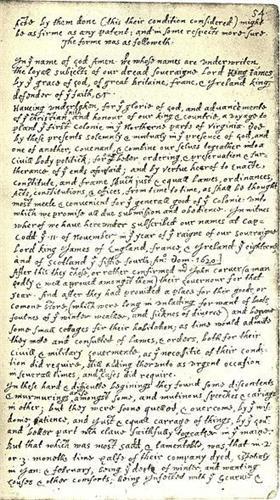 54
here by them done (this their condition considered) might
be as firme as any patent; and in some respects more sure.
The forme was as followeth.
In yͤ name of god Amen. We whose names are underwriten,
the loyall subjects of our dread soveraigne Lord King James
by yͤ grace of god, of great Britaine, franc, & Ireland king,
defender of yͤ faith, &c
Haveing undertaken, for yͤ glorie of god, and advancemente
of yͤ christian faith and honour of our king & countrie, a voyage to
plant yͤ first colonie in yͤ Northerne parts of Virginia. Doe
by these presents solemnly & mutualy in yͤ presence of god, and
one of another, covenant, & combine our selves togeather into a
Civill body politick; for yͤ better ordering, & preservation & fur-
therance of yͤ ends aforesaid; and by vertue hearof to enacte,
constitute, and frame shuch just & equall Lawes, ordinances,
Acts, constitutions, & offices, from time to time, as shall be thought
most meete & convenient for yͤ generall good of yͤ colonie: unto
which we promise all due submission and obedience. In witnes
wherof we have hereunder subscribed our names at Cap-
Codd yͤ .11. of November, in yͤ year of yͤ raigne of our soveraigne
Lord king James of England, franc, & Ireland yͤ eighteenth
and of Scotland yͤ fiftie fourth. Anᵒ Dom. 1620.]
After this they chose, or rather confirmed mʳ John carver (a man
godly & well approved amongst them) their Governour for that
year. And after they had provided a place for their goods, or
comone store, (which were long in unlading for want of boats,
foulnes of yͤ winter weather, and sicknes of diverce) and begune
some small cotages for their habitation; as time would admitte
they mete and consulted of lawes, & orders, both for their
civill, & military Govermente, as yͤ necessitie of their condi-
tion did require, still adding therunto as urgent occasion
in severall times, and as cases did require.
In these hard & difficulte beginings they found some discontents
& murmurings arise amongst some, and mutinous speeches & cariags
in other; but they were soone quelled, & overcome, by yͤ wis-
dome, patience, and just & equall carrage of things, by yͤ Govʳ
and better part wᶜʰ clave faithfully togeather in yͤ maine.
But that which was most sadd, & lamentable, was, that in .2.
or .3. moneths time halfe of their company dyed, espetialy
in Jan: & february, being yͤ depth of winter, and wanting
houses & other comforts; being Infected with yͤ scurvie &